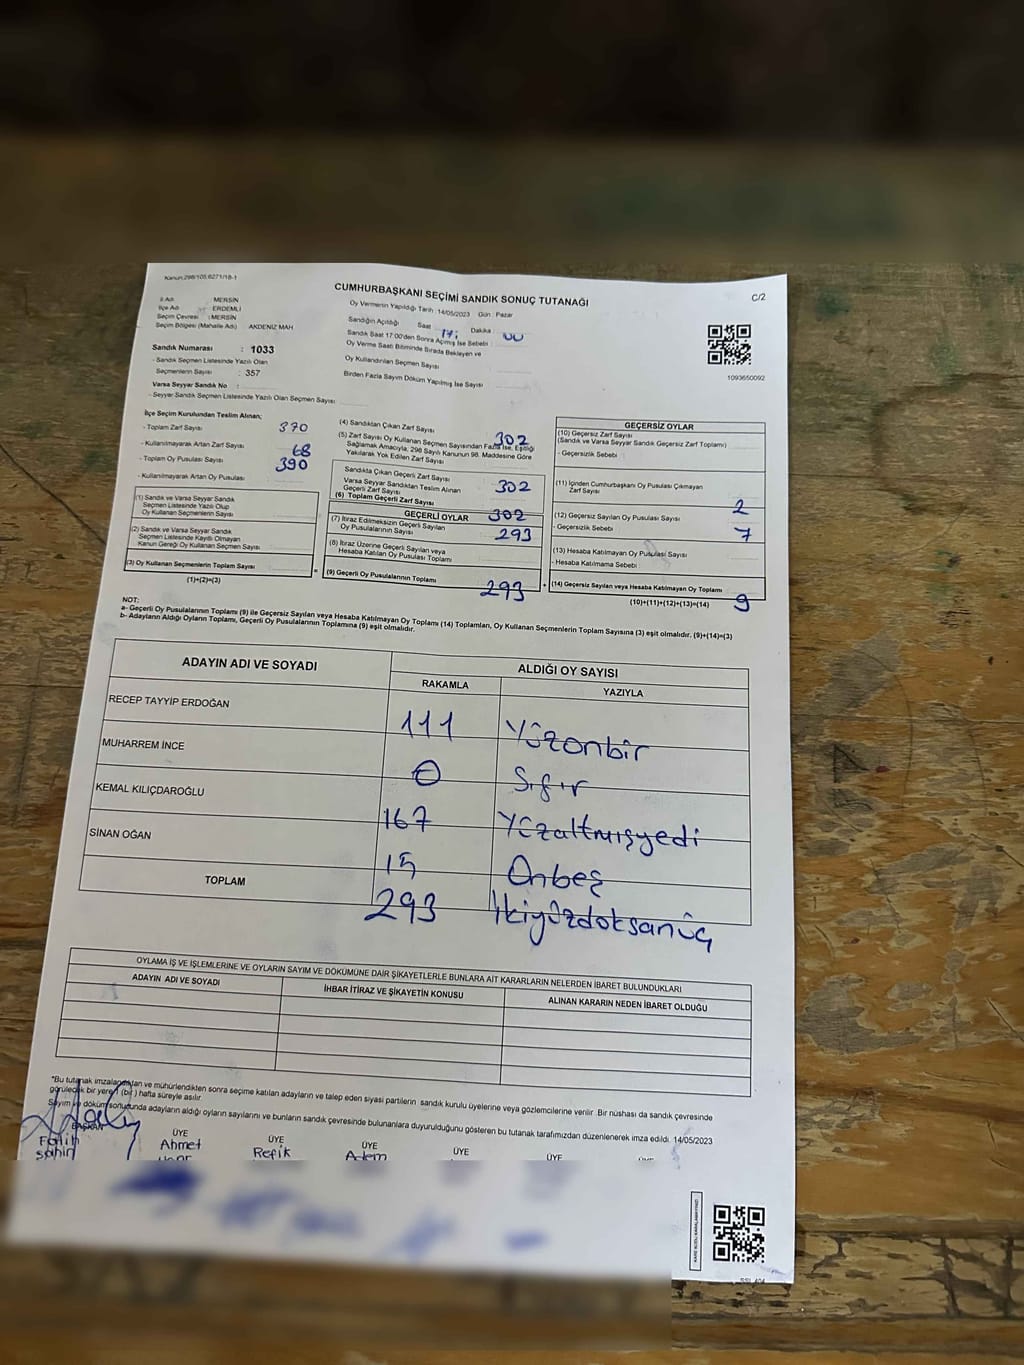 Kanun:298/105;6271/18-1
CUMHURBAŞKANI SEÇİMİ SANDIK SONUÇ TUTANAĞI
C/2
İl Adı : MERSİN
İlçe Adı : ERDEMLİ
Seçim Çevresi : MERSİN
Seçim Bölgesi (Mahalle Adı) AKDENİZ MAH
Oy Vermenin Yapıldığı Tarih 14/05/2023 Gün: Pazar
Sandığın Açıldığı Saat 17: Dakika : 00
Sandık Saat 17:00'den Sonra Açılmış İse Sebebi :
Oy Verme Saati Bitiminde Sırada Bekleyen ve
Oy Kullandırılan Seçmen Sayısı
Birden Fazla Sayım Döküm Yapılmış İse Sayısı
1093650092
Sandık Numarası : 1033
- Sandık Seçmen Listesinde Yazılı Olan
Seçmenlerin Sayısı : 357
Varsa Seyyar Sandık No :
- Seyyar Sandık Seçmen Listesinde Yazılı Olan Seçmen Sayısı
İlçe Seçim Kurulundan Teslim Alınan;
- Toplam Zarf Sayısı 370
- Kullanılmayarak Artan Zarf Sayısı 68
- Toplam Oy Pusulası Sayısı 390
- Kullanılmayarak Artan Oy Pusulası
(1) Sandık ve Varsa Seyyar Sandık
Seçmen Listesinde Yazılı Olup
Oy Kullanan Seçmenlerin Sayısı
(2) Sandık ve Varsa Seyyar Sandık
Seçmen Listesinde Kayıtlı Olmayan
Kanun Gereği Oy Kullanan Seçmen Sayısı
(3) Oy Kullanan Seçmenlerin Toplam Sayısı
(1)+(2)=(3)
(4) Sandıktan Çıkan Zarf Sayısı 302
(5) Zarf Sayısı Oy Kullanan Seçmen Sayısından Fazla İse, Eşitliği
Sağlamak Amacıyla, 298 Sayılı Kanunun 98. Maddesine Göre
Yakılarak Yok Edilen Zarf Sayısı
Sandıkta Çıkan Geçerli Zarf Sayısı 302
Varsa Seyyar Sandıktan Teslim Alınan
Geçerli Zarf Sayısı
(6) Toplam Geçerli Zarf Sayısı 302
GEÇERLİ OYLAR
(7) İtiraz Edilmeksizin Geçerli Sayılan
Oy Pusulalarının Sayısı 293
(8) İtiraz Üzerine Geçerli Sayılan veya
Hesaba Katılan Oy Pusulası Toplamı
= (9) Geçerli Oy Pusulalarının Toplamı 293
GEÇERSİZ OYLAR
(10) Geçersiz Zarf Sayısı
(Sandık ve Varsa Seyyar Sandık Geçersiz Zarf Toplamı)
- Geçersizlik Sebebi
(11) İçinden Cumhurbaşkanı Oy Pusulası Çıkmayan
Zarf Sayısı 2
(12) Geçersiz Sayılan Oy Pusulası Sayısı 7
- Geçersizlik Sebebi
(13) Hesaba Katılmayan Oy Pusulası Sayısı
- Hesaba Katılmama Sebebi
+ (14) Geçersiz Sayılan veya Hesaba Katılmayan Oy Toplamı 9
(10)+(11)+(12)+(13)=(14)
NOT:
a- Geçerli Oy Pusulalarının Toplamı (9) ile Geçersiz Sayılan veya Hesaba Katılmayan Oy Toplamı (14) Toplamları, Oy Kullanan Seçmenlerin Toplam Sayısına (3) eşit olmalıdır. (9)+(14)=(3)
b- Adayların Aldığı Oyların Toplamı, Geçerli Oy Pusulalarının Toplamına (9) eşit olmalıdır.
ADAYIN ADI VE SOYADI
ALDIĞI OY SAYISI
RAKAMLA YAZIYLA
RECEP TAYYİP ERDOĞAN 111 Yüzonbir
MUHARREM İNCE 0 Sıfır
KEMAL KILIÇDAROĞLU 167 Yüzaltmışyedi
SİNAN OĞAN 15 Onbeş
TOPLAM 293 İkiyüzdoksanüç
OYLAMA İŞ VE İŞLEMLERİNE VE OYLARIN SAYIM VE DÖKÜMÜNE DAİR ŞİKAYETLERLE BUNLARA AİT KARARLARIN NELERDEN İBARET BULUNDUKLARI
ADAYIN ADI VE SOYADI İHBAR İTİRAZ VE ŞİKAYETİN KONUSU ALINAN KARARIN NEDEN İBARET OLDUĞU
*Bu tutanak imzalandıktan ve mühürlendikten sonra seçime katılan adayların ve talep eden siyasi partilerin sandık kurulu üyelerine veya gözlemcilerine verilir. Bir nüshası da sandık çevresinde
görülecek bir yere 1 (bir) hafta süreyle asılır.
Sayım ve döküm sonucunda adayların aldığı oyların sayılarını ve bunların sandık çevresinde bulunanlara duyurulduğunu gösteren bu tutanak tarafımızdan düzenlenerek imza edildi. 14/05/2023
BAŞKAN ÜYE ÜYE ÜYE ÜYE ÜYE
Fatih Ahmet Refik Adem
Şahin